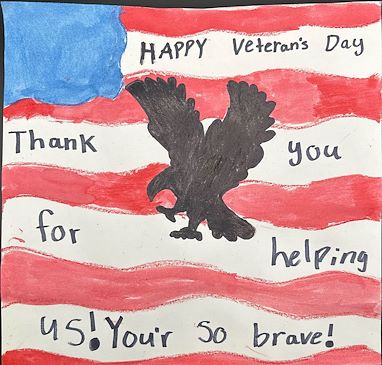 HAPPY Veteran's Day
Thank you
for helping
us! You'r so brave!